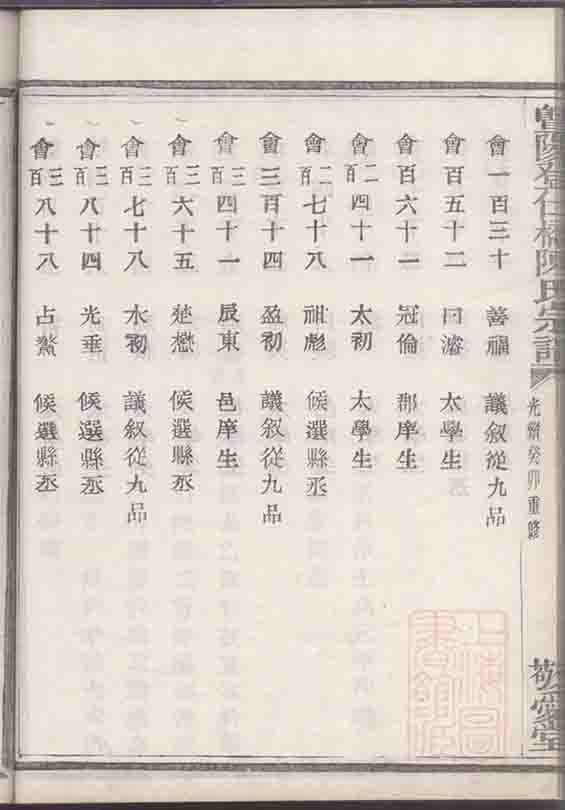 暨陽仁橋陳氏宗譜 光緒癸卯重修 敬愛堂
會一百三十 善福 議叙從九品
會百五十二 曰濬 太學生
會百六十一 冠倫 郡庠生
會二百四十一 太初 太學生
會二百七十八 祖彪 候選縣丞
會三百十四 盈初 議叙從九品
會三百四十一 辰東 邑庠生
會三百六十五 楚懋 候選縣丞
會三百七十八 水初 議叙從九品
會三百八十四 光垂 候選縣丞
會三百八十八 占鰲 候選縣丞
上海圖
書館藏